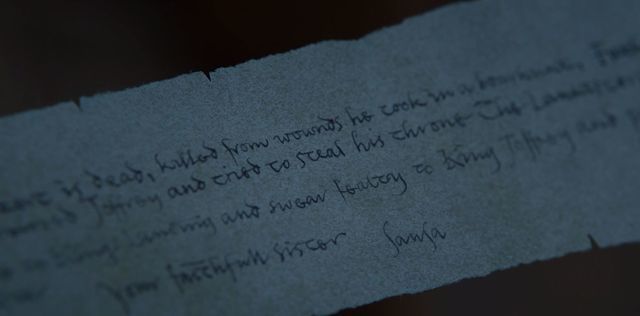 is dead, killed from wounds he took in a boarhunt,
Joffrey and tried to steal his throne The
to Kings Landing and swear fealty to King Joffrey and
your faithfull sister Sansa